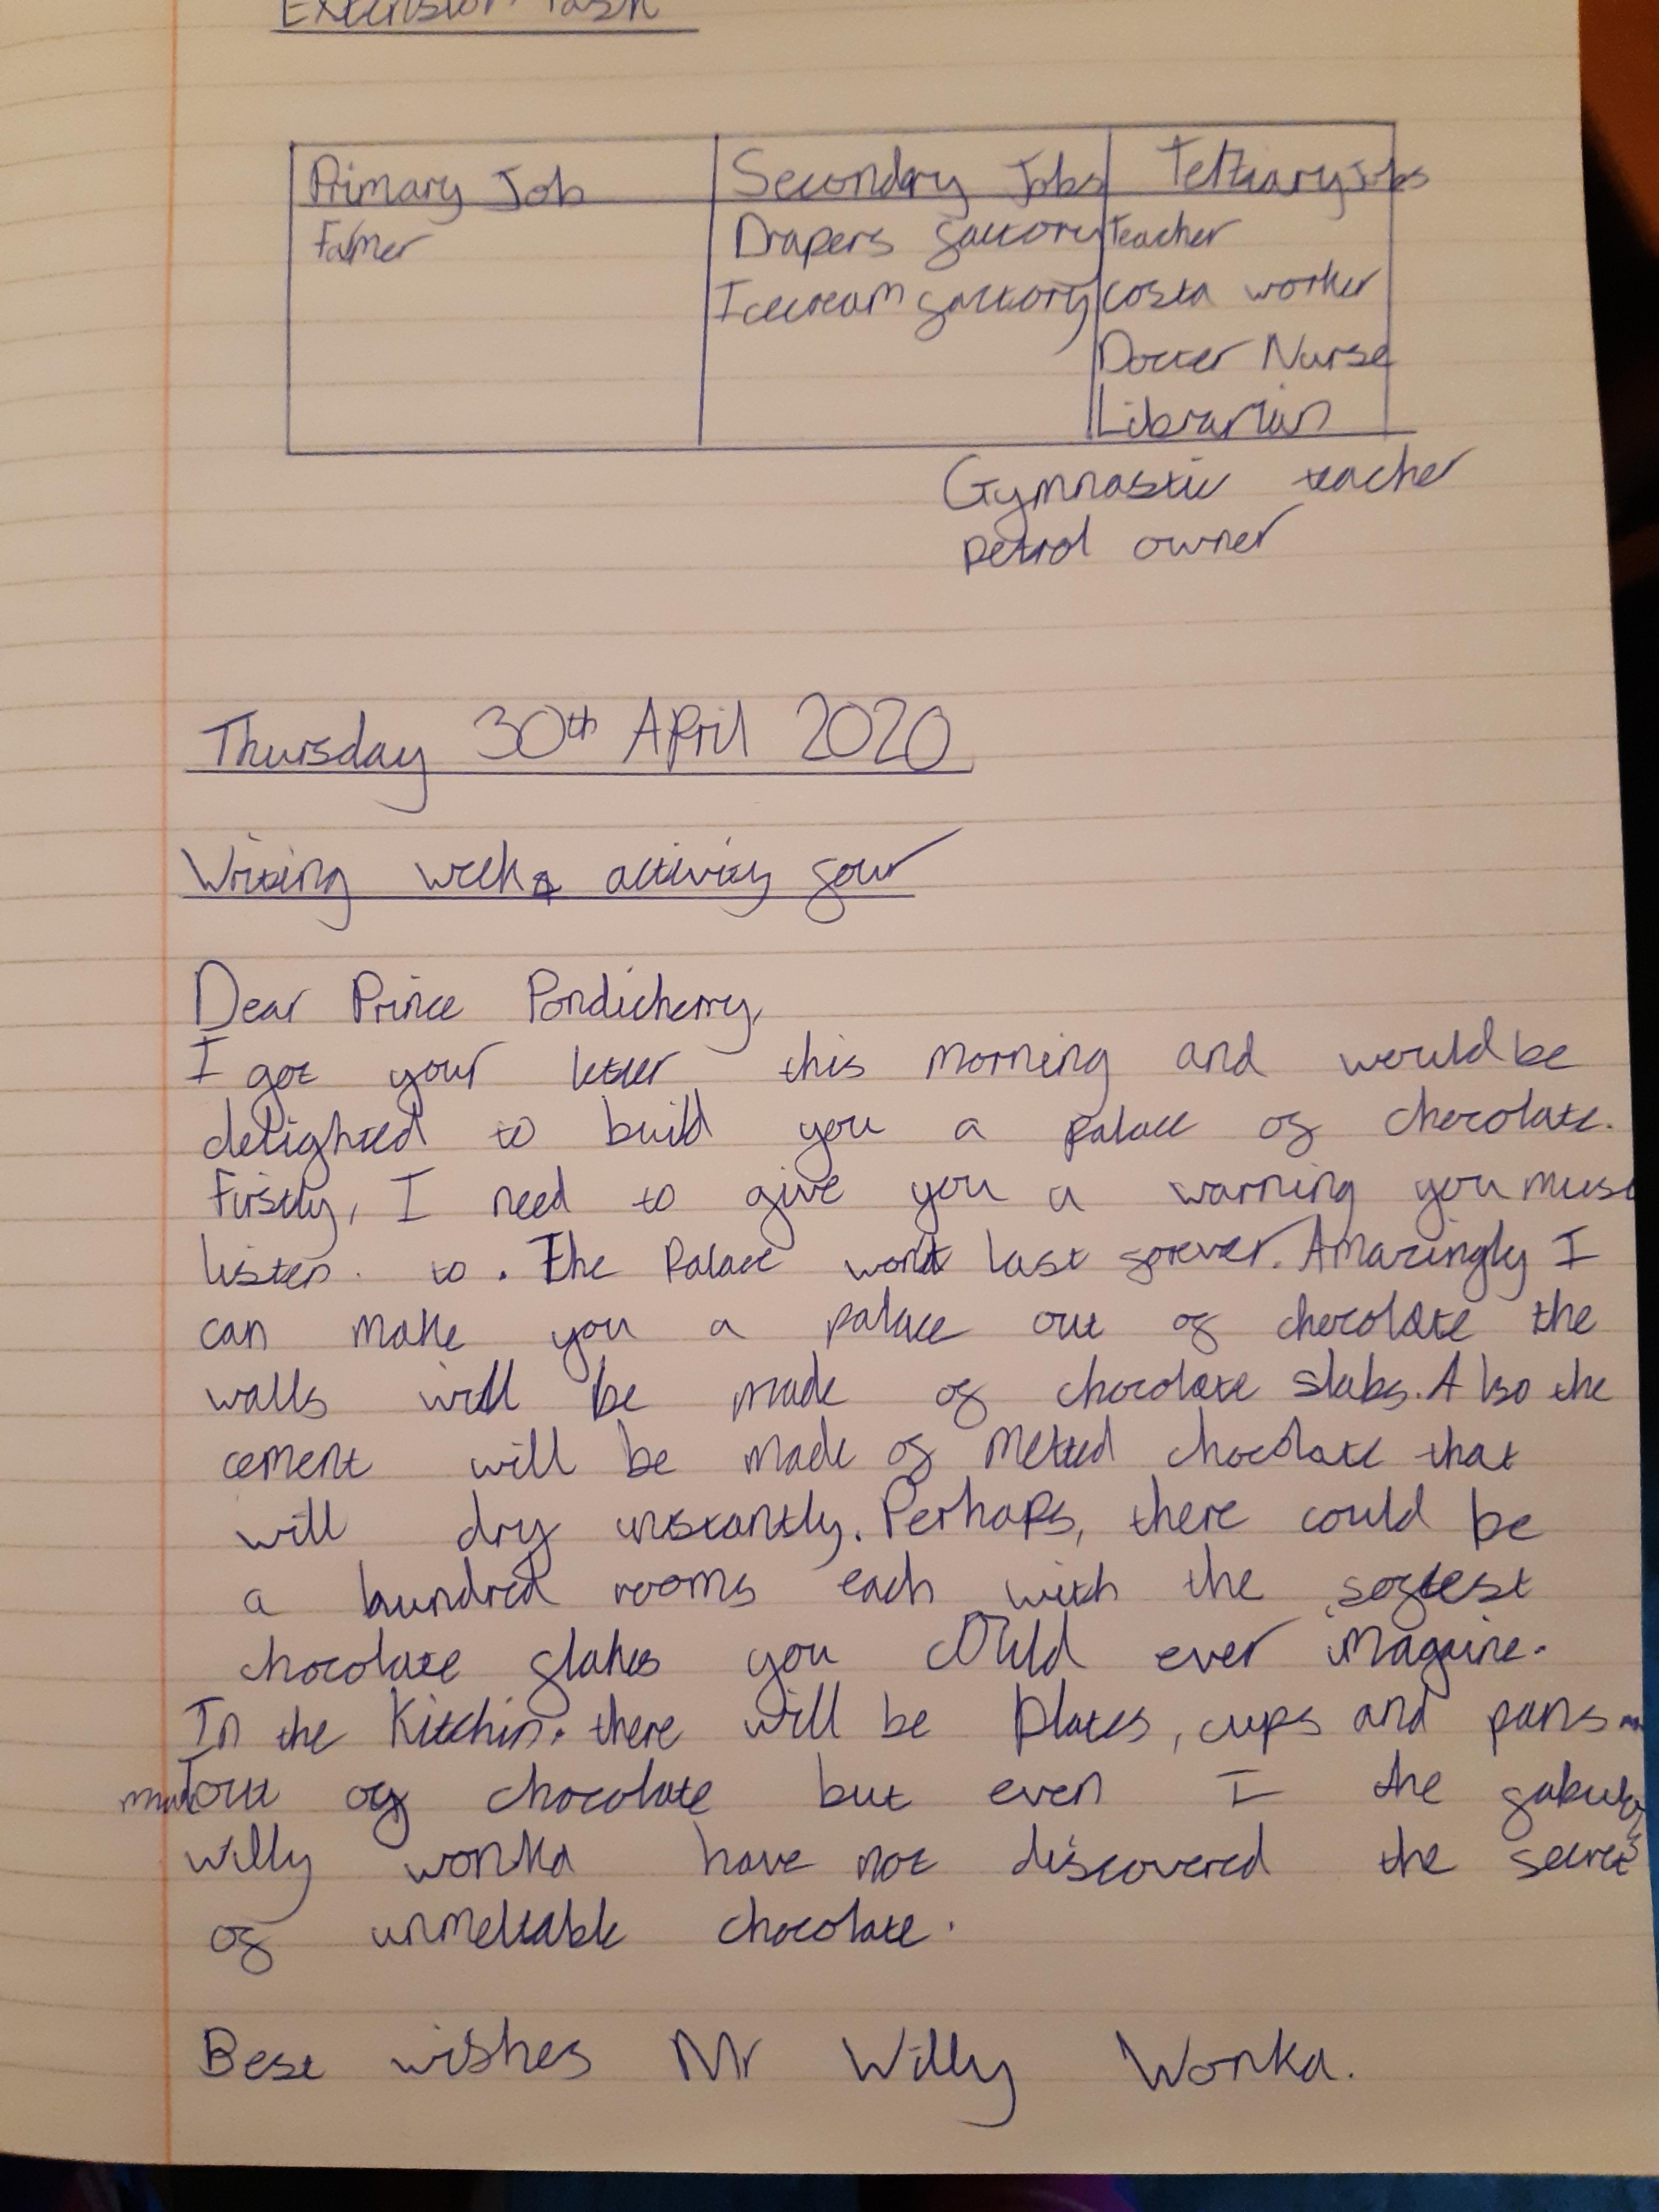 Extension Task
Primary Job Secondary Jobs Tertiary Jobs
Farmer Drapers factory teacher
Icecream factory costa worker
Docter Nurse
Librarian
Gymnastic teacher
petrol owner
Thursday 30th April 2020
Writing week 2 activity four
Dear Prince Pondicherry,
I got your letter this morning and would be
delighted to build you a palace of chocolate.
Firstly, I need to give you a warning you must
listen to. The Palace wont last forever. Amazingly I
can make you a palace out of chocolate the
walls will be made of chocolate slabs. Also the
cement will be made of melted chocolate that
will dry instantly. Perhaps, there could be
a hundred rooms each with the softest
chocolate flakes you could ever imagine.
In the Kitchin. there will be plates, cups and pans
made out of chocolate but even I the
Willy wonka have not discovered the secret
of unmeltable chocolate.
Best wishes Mr Willy Wonka.